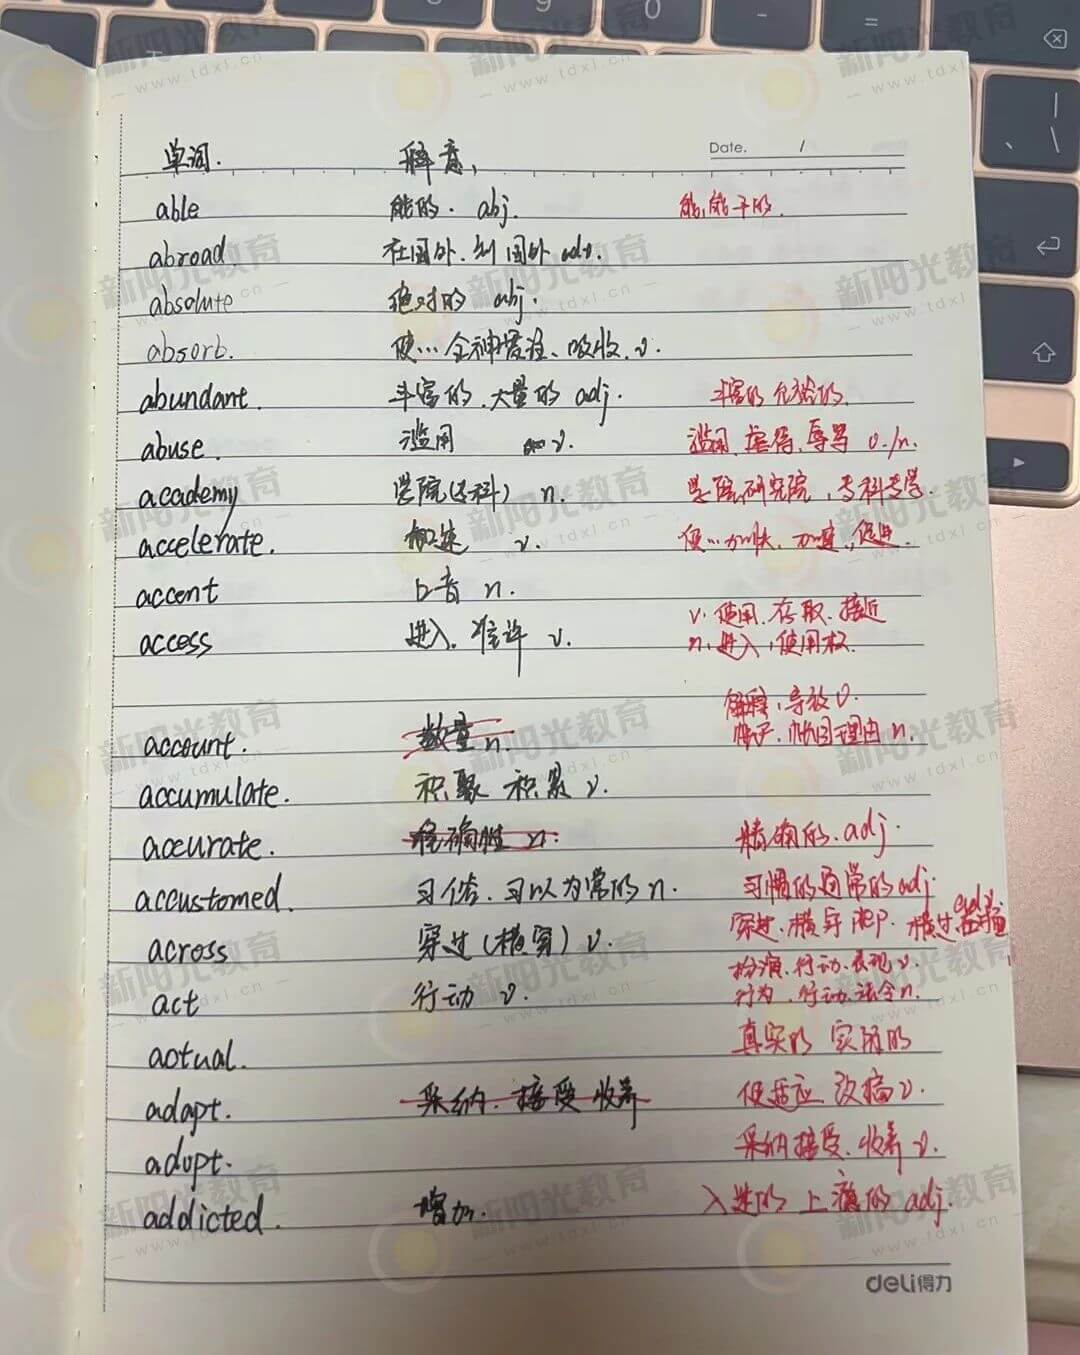 Date. /
单词. 解意,
able 能的. abj. 能,能干的.
abroad. 在国外.到国外 adv.
absolute 绝对的 abj.
absorb. 使…全神贯注、吸收.v.
abundant. 丰富的.大量的 adj. 丰富的 充裕的.
abuse. 滥用 v. 滥用.虐待.辱骂 v./n.
academy 学院(专科) n. 学院,研究院,专科专学.
accelerate. 加速 v. 使…加快.加速,促进.
accent 口音 n.
access 进入.准许 v. v.使用.存取.接近
n.进入,使用权.
解释,导致v.
account. 数量 n. 帐目理由 n.
accumulate. 积聚 积累 v.
accurate. 准确性 n. 精确的.adj.
accustomed. 习俗.习以为常的 n. 习惯的通常的adj.
across 穿过(横穿) v. 穿过.横穿 横过 adv.
扮演.行动.表现 v.
act 行动 v. 行为.行动.法令n.
actual. 真实的 实际的
adapt. 采纳.接受 收养 使适应.改编v.
adopt. 采纳接受.收养 v.
addicted. 增加. 入迷的 上瘾的 adj.
deli得力
新阳光教育
www.tdxl.cn